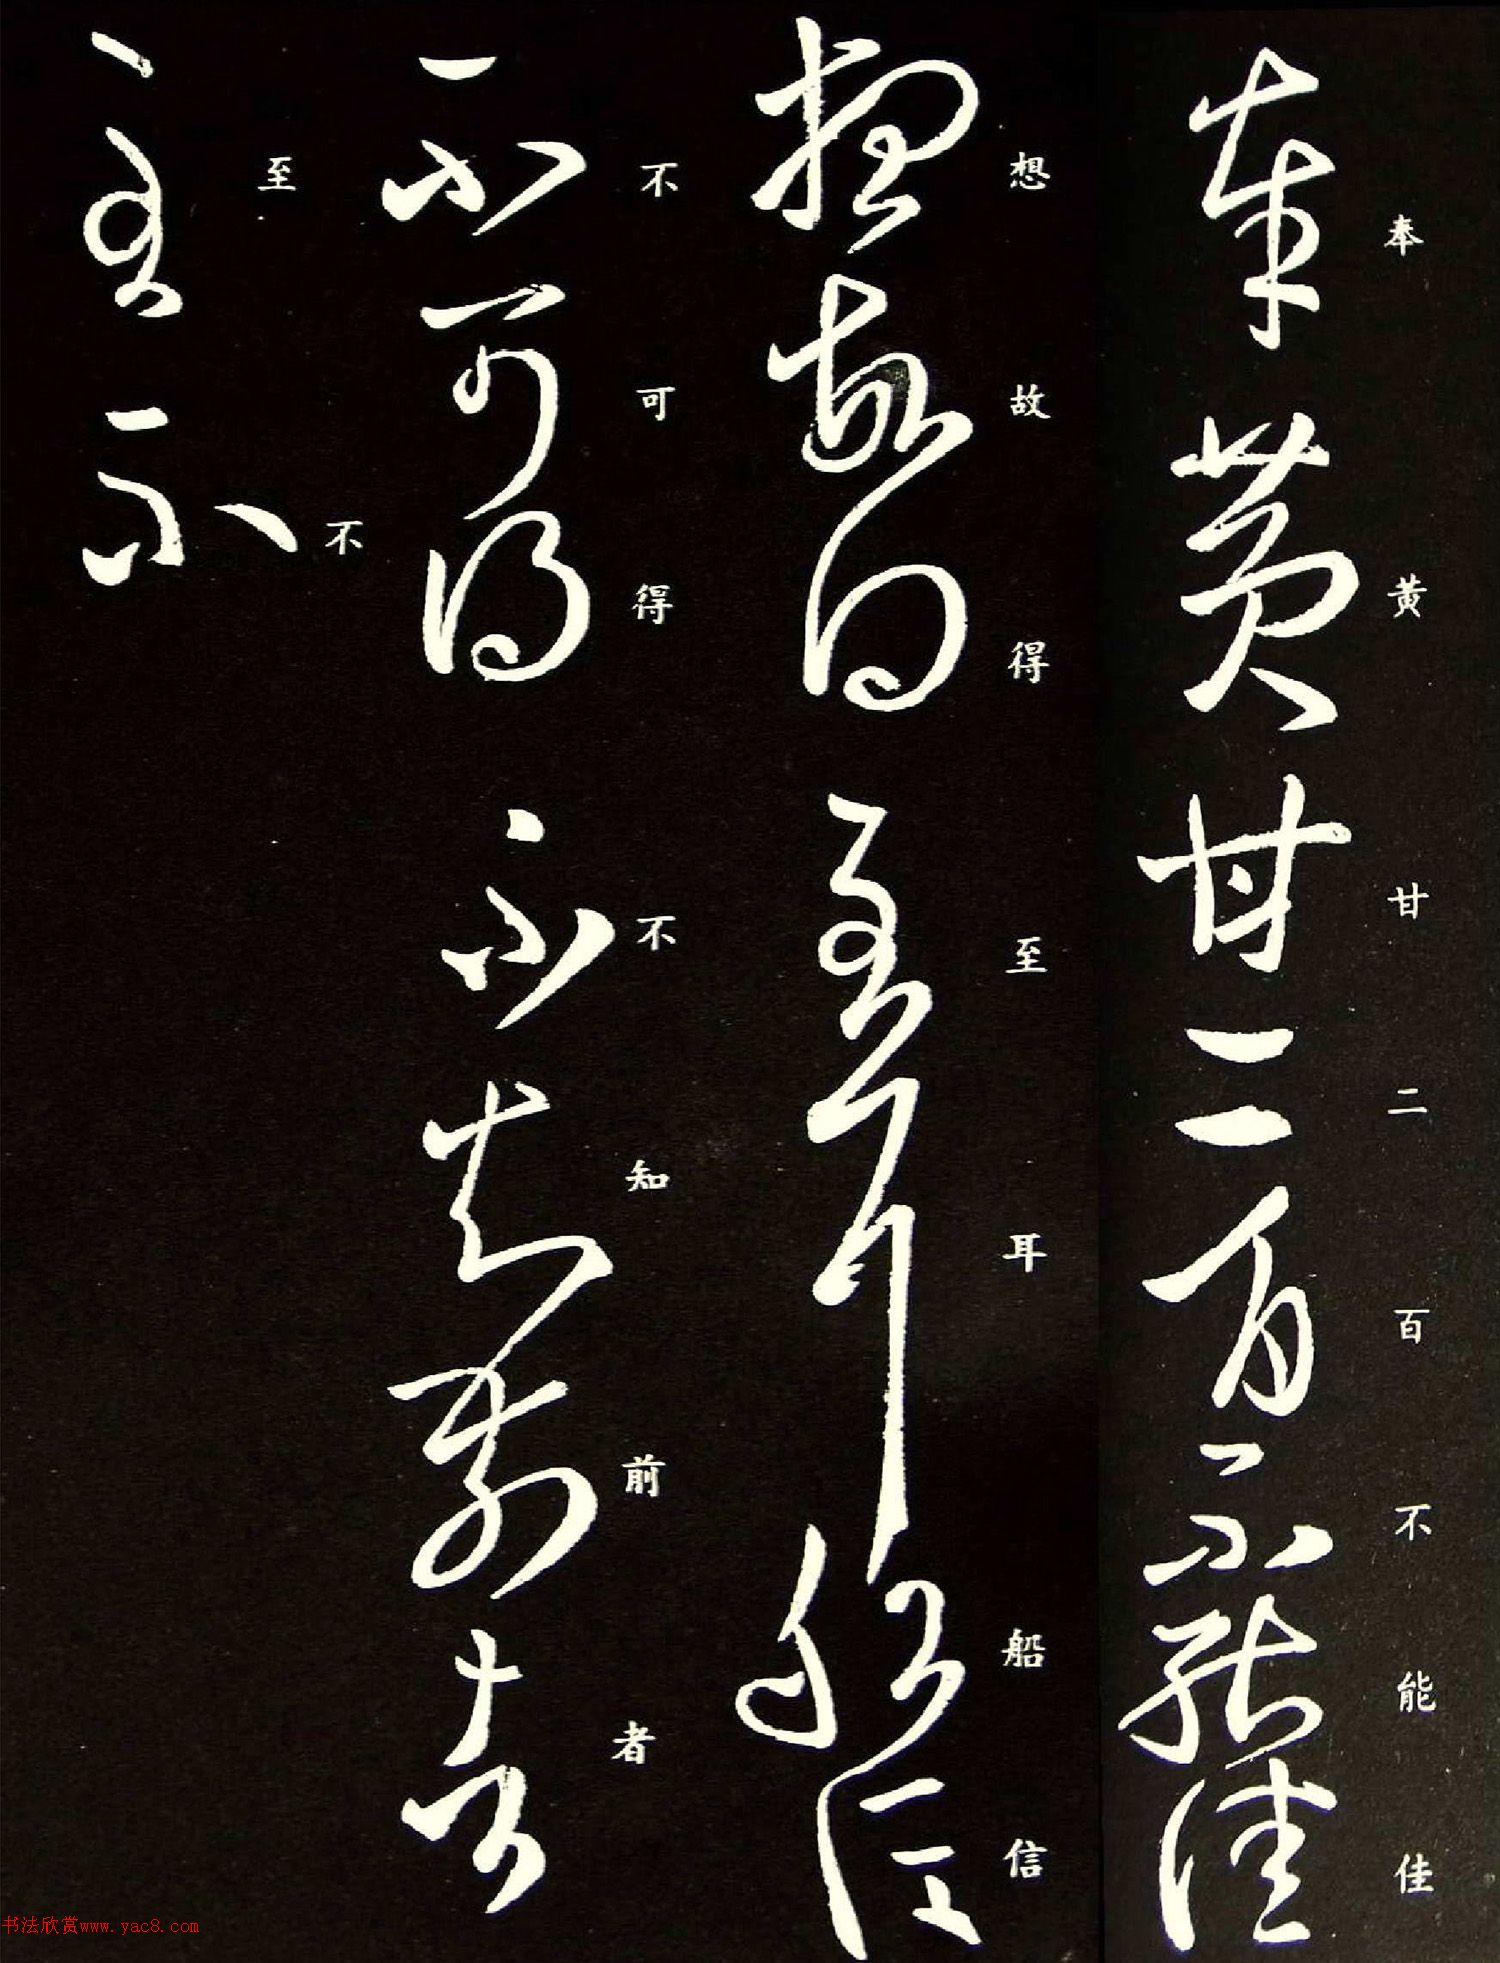 奉黄甘二百不能佳
想故得至耳船信
不可得不知前者
至不
书法欣赏www.yac8.com